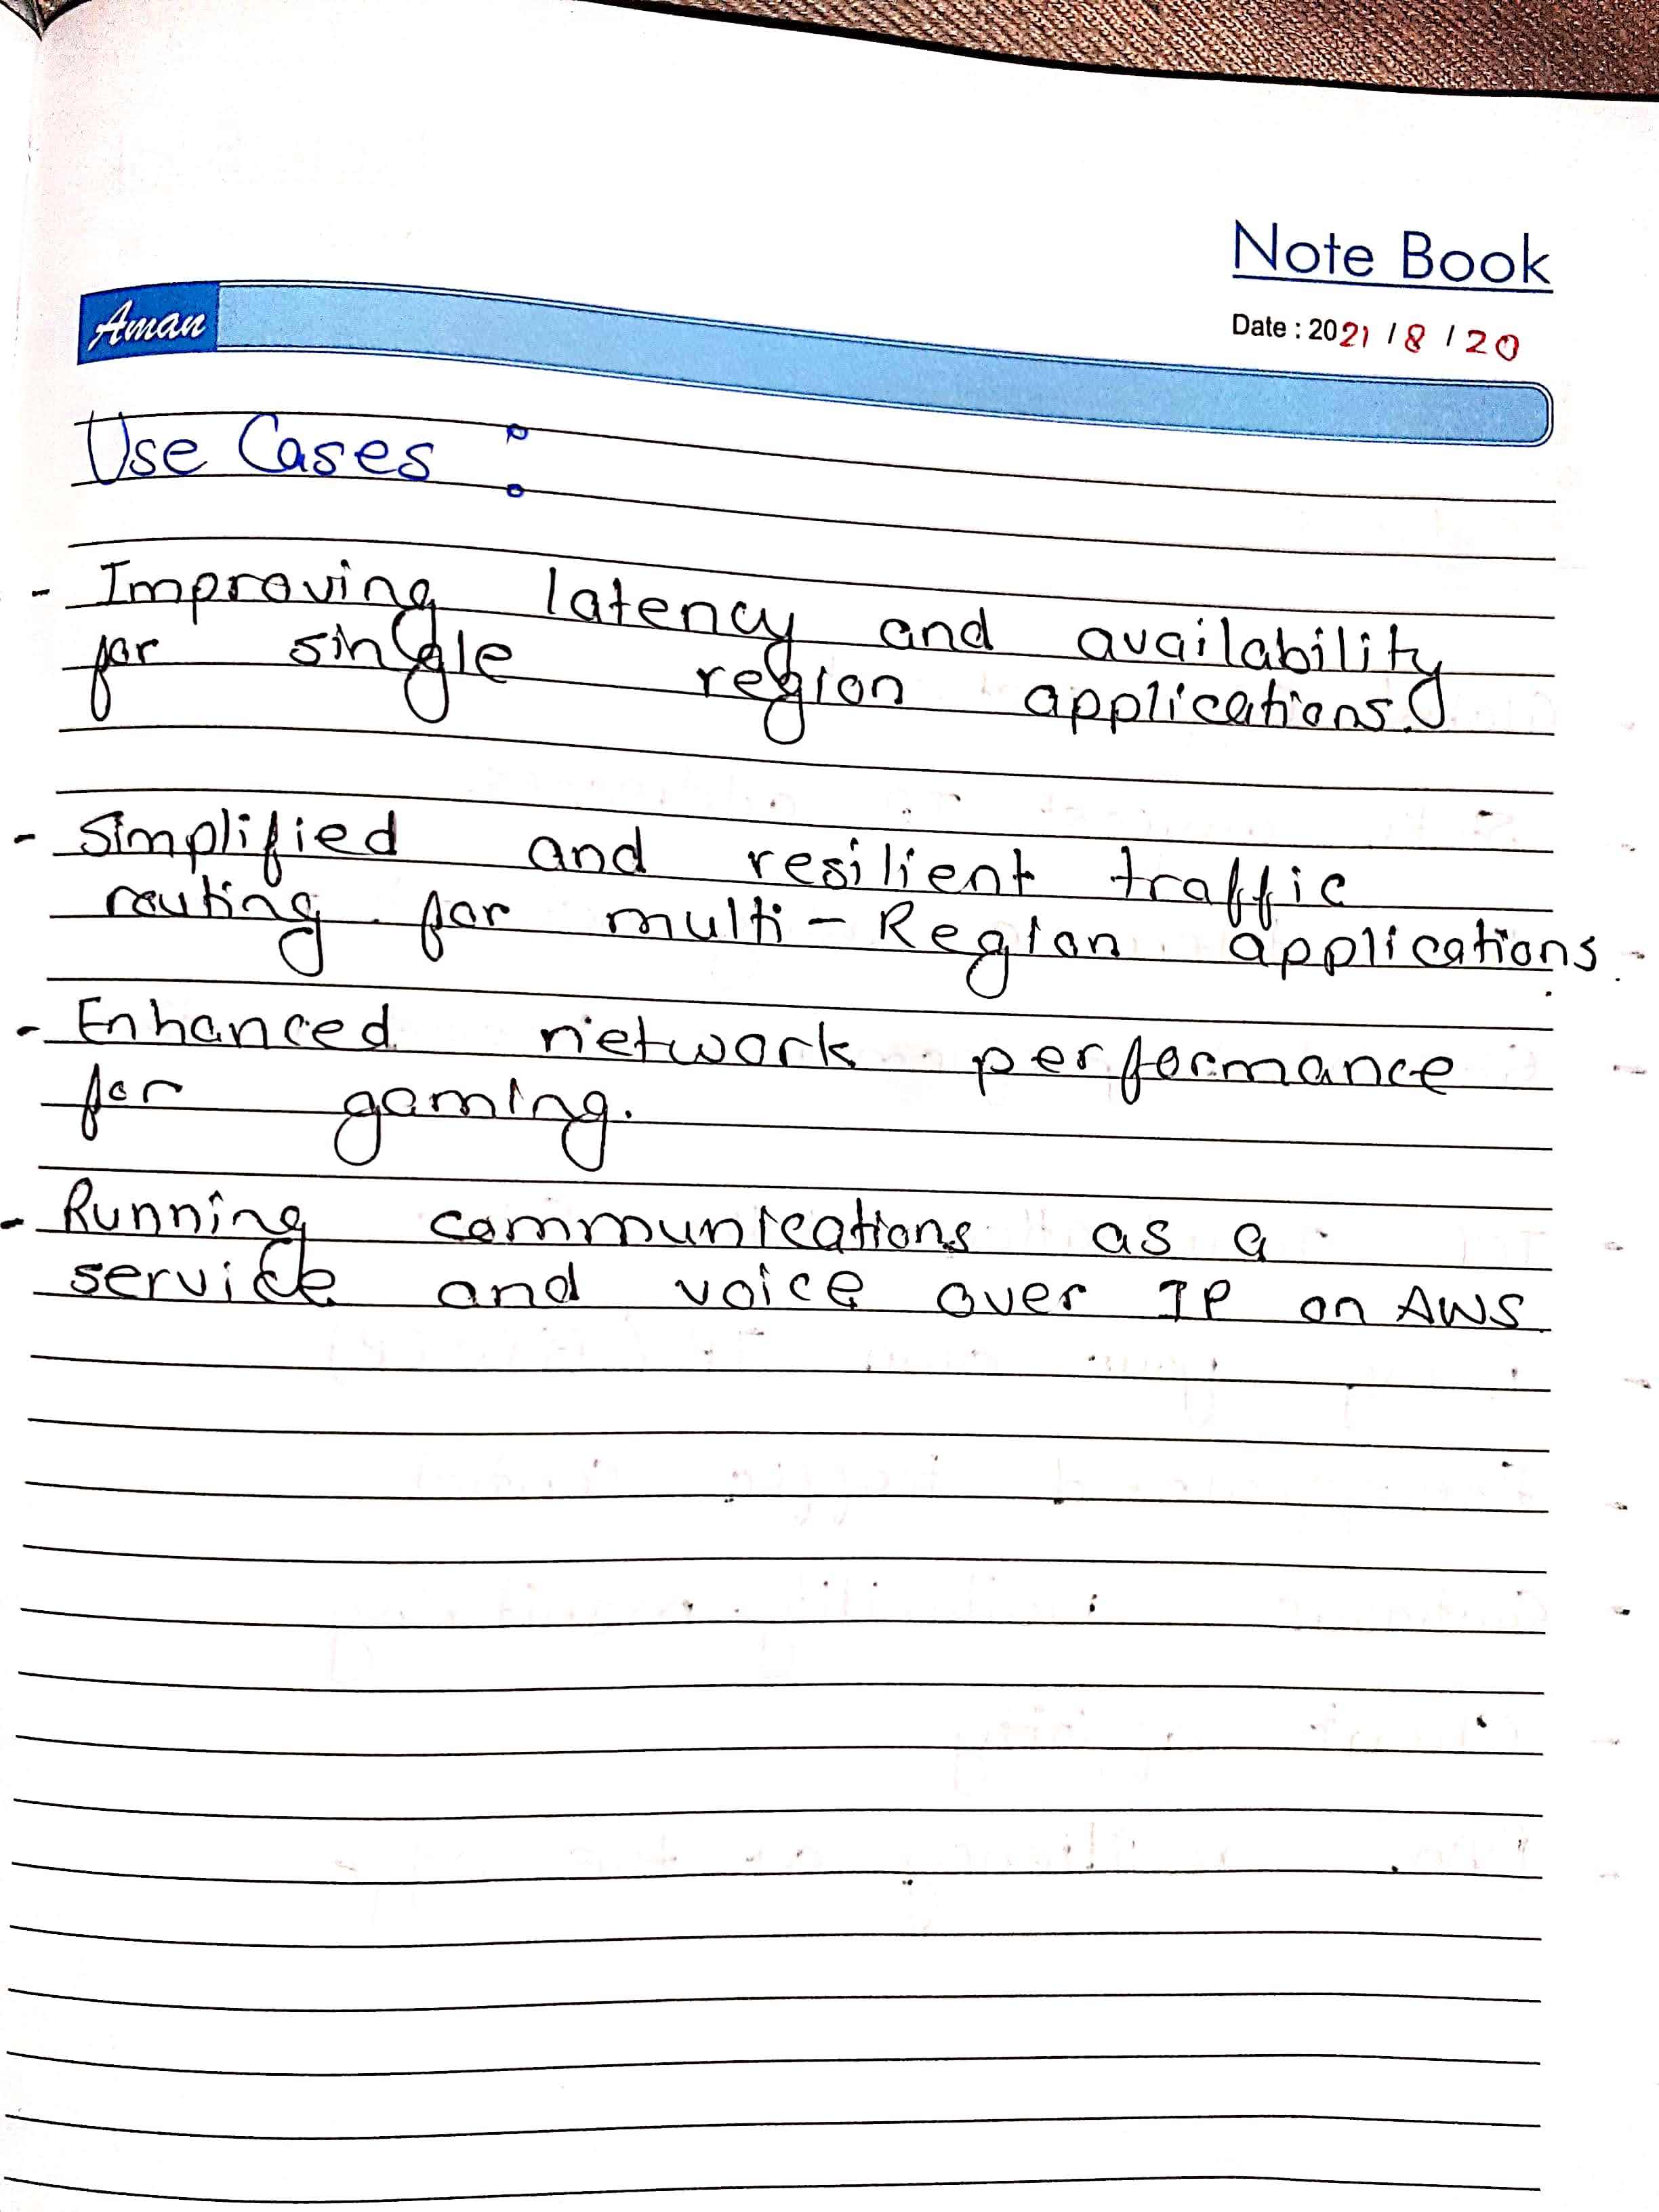 Note Book
Aman
Date : 2021 / 8 / 20
Use Cases :
- Improving latency and availability
for single region applications.
- Simplified and resilient traffic
routing for multi - Region applications.
- Enhanced network performance
for gaming.
- Running communications as a
service and voice over IP on AWS